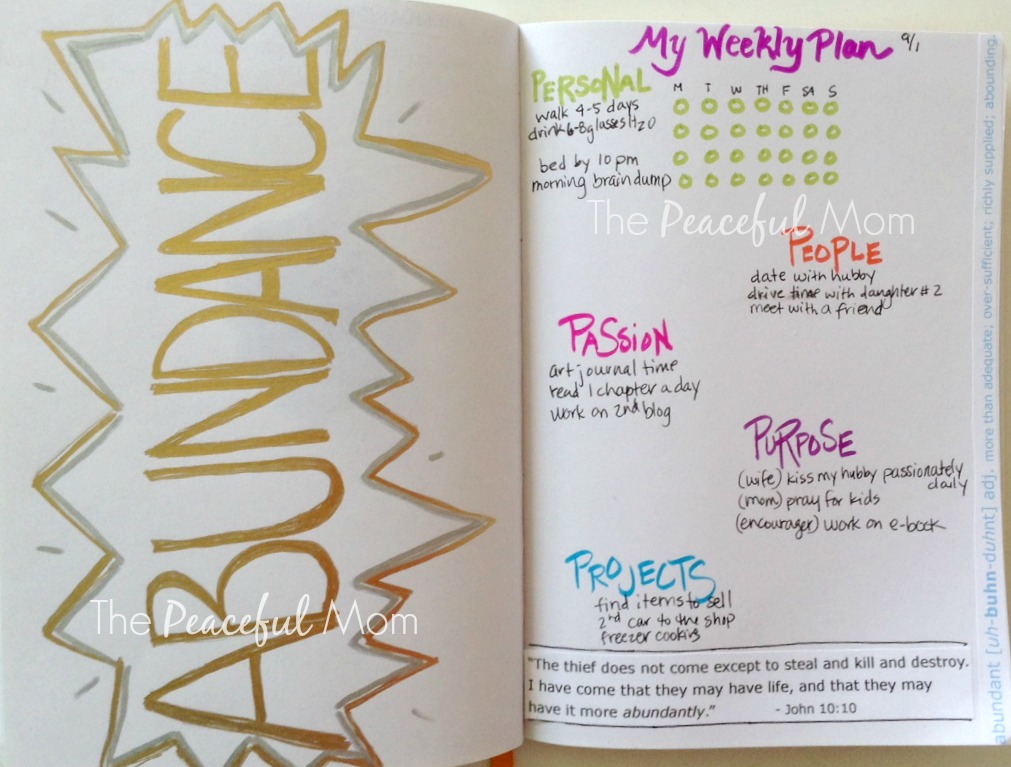 ABUNDANCE
The Peaceful Mom
My Weekly Plan 9/1
PERSONAL
M T W TH F SA S
walk 4-5 days
drink 6-8 glasses H2O
bed by 10 pm
morning braindump
The Peaceful Mom
PEOPLE
date with hubby
drive time with daughter #2
meet with a friend
PASSION
art journal time
read 1 chapter a day
work on 2nd blog
PURPOSE
(wife) kiss my hubby passionately
daily
(mom) pray for kids
(encourager) work on e-book
PROJECTS
find items to sell
2nd car to the shop
freezer cooking
"The thief does not come except to steal and kill and destroy.
I have come that they may have life, and that they may
have it more abundantly." - John 10:10
abundant [uh-buhn-duhnt] adj. more than adequate; over-sufficient; richly supplied; abounding.